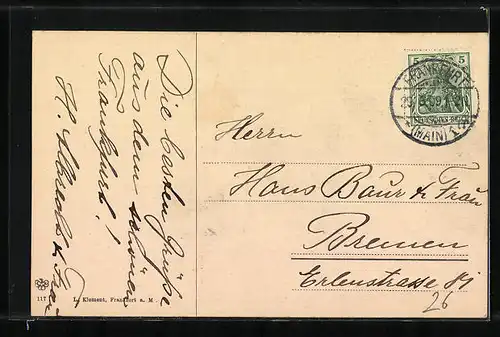 Die besten Grüße
aus dem schönen
Frankfurt!
H.
5 5
DEUTSCHES REICH
FRANKFURT
(MAIN)
Herrn
Hans Baur & Frau
Bremen
Erlenstrasse 81
26
117
L. Klement, Frankfurt a. M.